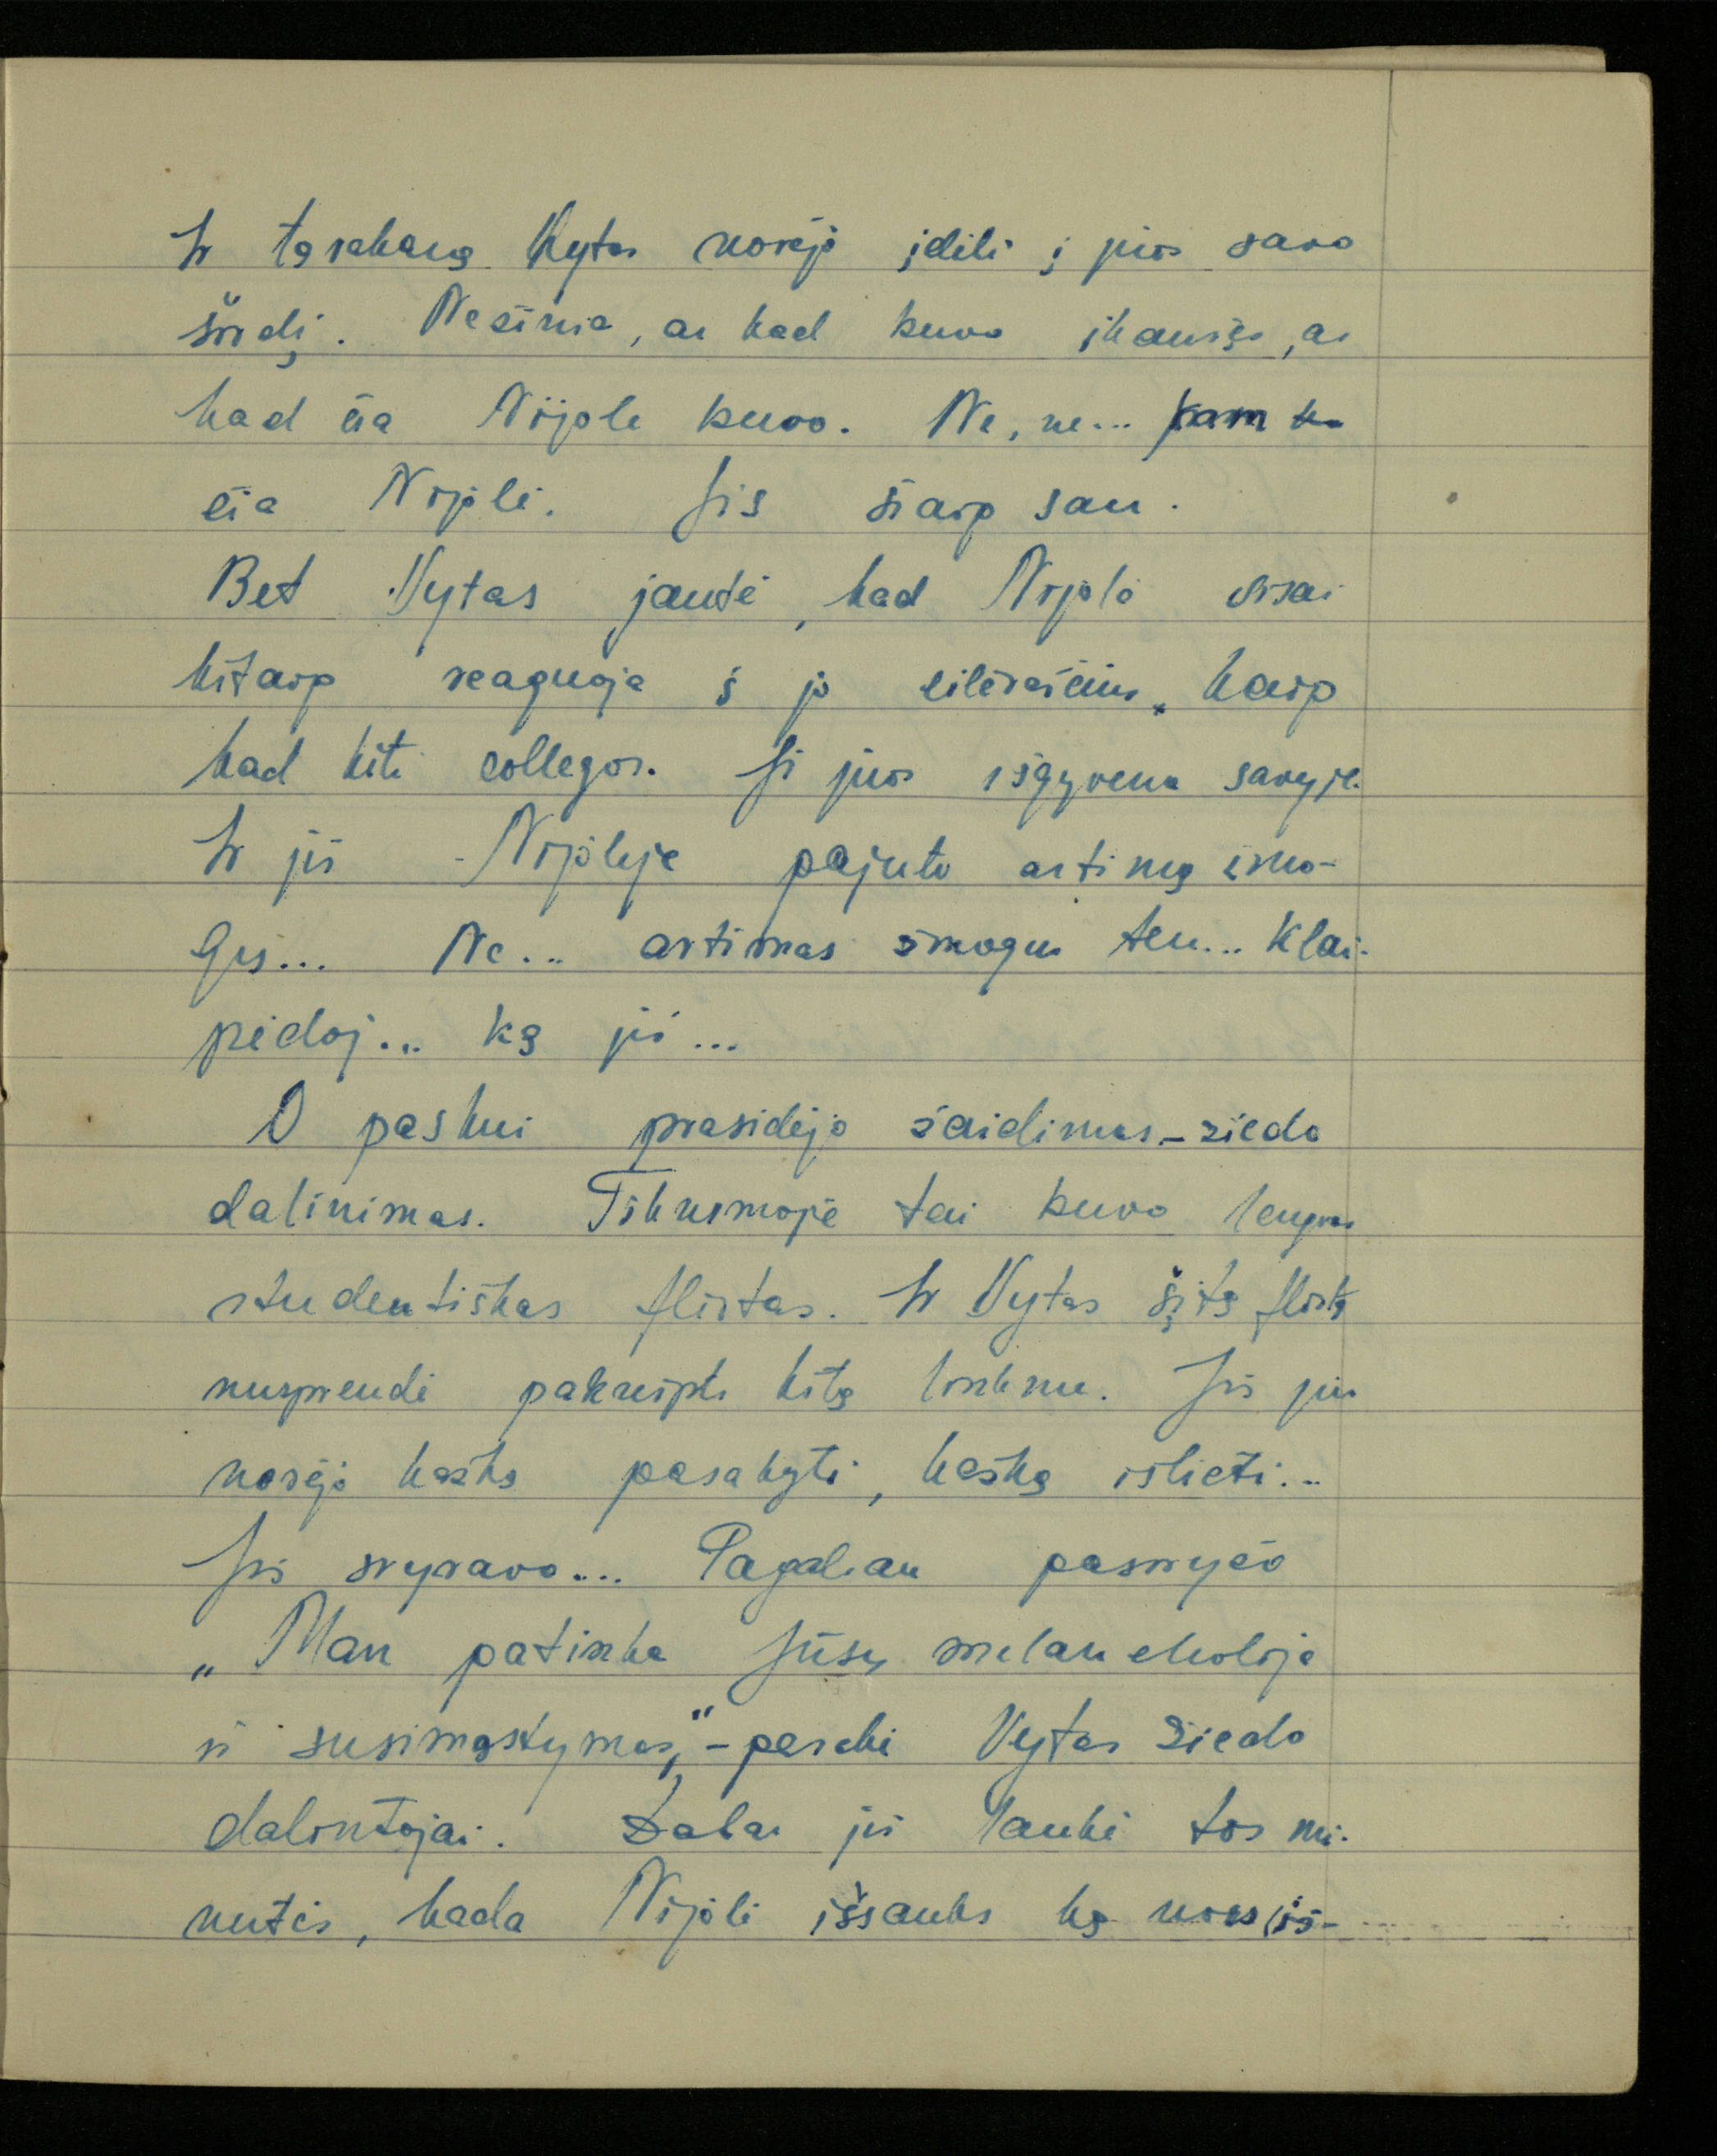 Ir tą vakarą Vytas norėjo įdėti į juos savo
širdį. Nežinia, ar kad buvo įkaušęs, ar
kad čia Nijolė buvo. Ne, ne... kam
čia Nijolė. Jis šiaip sau.
Bet Vytas jautė, kad Nijolė visai
kitaip reaguoja į jo eilėraščius, kaip
kad kiti collegos. Ji juos išgyvena savyje.
Ir jis Nijolėje pajuto artimą žmo-
gų... Ne... artimas žmogus ten... Klai-
pėdoj... Ką jis...
O paskui prasidėjo žaidimas - žiedo
dalinimas. Tikrumoje tai buvo lengvas
studentiškas flirtas. Ir Vytas šitą flirtą
nusprendė pakreipti kita linkme. Jis juk
norėjo kažką pasakyti, kažką išlieti...
Jis svyravo... Pagaliau pasiryžo
„Man patinka Jūsų melancholija
ir susimąstymas," - pasakė Vytas žiedo
dalintojai. Dabar jis laukė tos mi-
nutės, kada Nijolė išsauks ką nors iš-